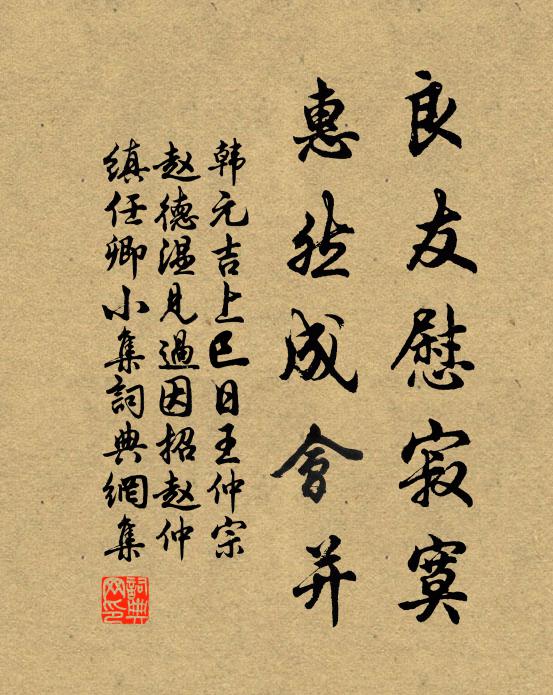 良友慰寂寞
惠然成會并
韩元吉上巳日王仲宗
赵德温見過因招赵仲
缜任卿小集詞典網集
詞典网印